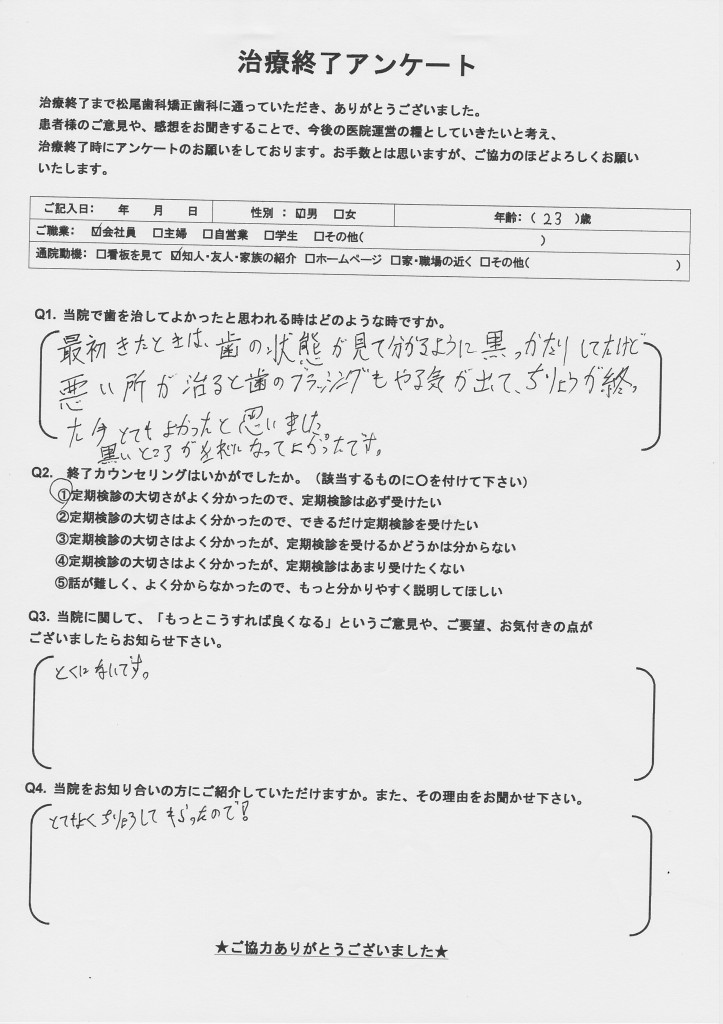 治療終了アンケート
治療終了まで松尾歯科矯正歯科に通っていただき、ありがとうございました。
患者様のご意見や、感想をお聞きすることで、今後の医院運営の糧としていきたいと考え、
治療終了時にアンケートのお願いをしております。お手数とは思いますが、ご協力のほどよろしくお願い
いたします。
ご記入日： 年 月 日 性別 ： ☑男 □女 年齢：（ 23 ）歳
ご職業： ☑会社員 □主婦 □自営業 □学生 □その他（ ）
通院動機： □看板を見て ☑知人・友人・家族の紹介 □ホームページ □家・職場の近く □その他（ ）
Q1. 当院で歯を治してよかったと思われる時はどのような時ですか。
最初きたときは、歯の状態が見て分かるように黒っかたりしてたけど
悪い所が治ると歯のブラッシングもやる気が出て、ちりょうが終っ
た今とてもよかったと思いました
黒いところがきれいになってよかったです。
Q2. 終了カウンセリングはいかがでしたか。（該当するものに○を付けて下さい）
①定期検診の大切さがよく分かったので、定期検診は必ず受けたい
②定期検診の大切さはよく分かったので、できるだけ定期検診を受けたい
③定期検診の大切さはよく分かったが、定期検診を受けるかどうかは分からない
④定期検診の大切さはよく分かったが、定期検診はあまり受けたくない
⑤話が難しく、よく分からなかったので、もっと分かりやすく説明してほしい
Q3. 当院に関して、「もっとこうすれば良くなる」というご意見や、ご要望、お気付きの点が
ございましたらお知らせ下さい。
とくにないです。
Q4. 当院をお知り合いの方にご紹介していただけますか。また、その理由をお聞かせ下さい。
とてもよくちりょうしてもらったので！
★ご協力ありがとうございました★